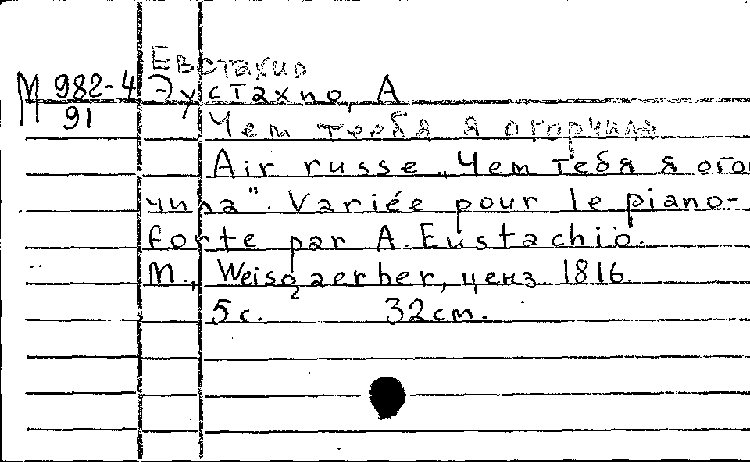 Евстахио
М 982-4 Эустахио, А
91
Чем тебя я огорчила
Air russe „Чем тебя я огор
чила". Variée pour le piano-
forte par A. Eustachio.
М., Weisgaerber, ценз. 1816.
5 с. 32 cm.